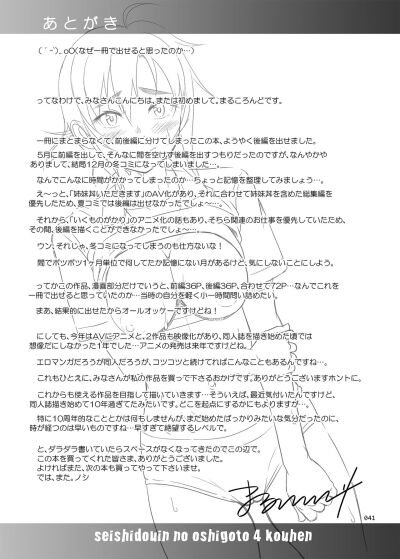 あとがき
( ´-`)。oO(なぜ一冊で出せると思ったのか…)
ってなわけで、みなさんこんにちは、または初めまして、まるころんどです。
一冊にまとまらなくて、前後編に分けてしまったこの本、ようやく後編を出せました。
5月に前編を出して、そんなに間を空けず後編を出すつもりだったのですが、なんやかや
ありまして、結局12月の冬コミになってしまいました…。
なんでこんなに時間がかかってしまったのか…ちょっと記憶を整理してみましょう…。
え～っと、「姉妹丼いただきます」のAV化があり、それに合わせて姉妹丼を含めた総集編を
優先したため、夏コミでは後編は出せなかったでしょ～…。
それから、「いくものがかり」のアニメ化の話もあり、そちら関連のお仕事を優先していたため、
その間、後編を描くことができなかったでしょ～…。
ウン、それじゃ、冬コミになってしまうのも仕方ないな！
間でポツポツ1ヶ月単位で何してたか記憶にない月があるけど、気にしないことにしよう。
ってかこの作品、漫画部分だけでいうと、前編36P、後編36P、合わせて72P…なんでこれを
一冊で出せると思っていたのか…当時の自分を軽く小一時間問い詰めたい。
まあ、結果的に出せたからオールオッケーですけどね！
にしても、今年はAVにアニメと、2作品も映像化があり、同人誌を描き始めた頃では
想像だにしなかった1年でした…アニメの発売は来年ですけどね。
エロマンガだろうが同人だろうが、コツコツと続けてればこんなこともあるんですね…。
これもひとえに、みなさんが私の作品を買って下さるおかげです。ありがとうございますホントに。
これからも使える作品を目指して描いていきます…そういえば、最近気付いたんですけど、
同人誌描き始めて10年過ぎてたみたいです。どこを起点にするかにもよりますが…。
特に10周年的なこととかは何もしませんが、まだ始めたばっかりみたいな気分だったのに、
時が経つのは早いものですね…早すぎて絶望するレベルで。
と、ダラダラ書いていたらスペースがなくなってきたのでこの辺で。
この本を買ってくれた皆さま、ありがとうございました。
よければまた、次の本も買ってやって下さいませ。
では、また。ノシ
041
seishidouin no oshigoto 4 kouhen